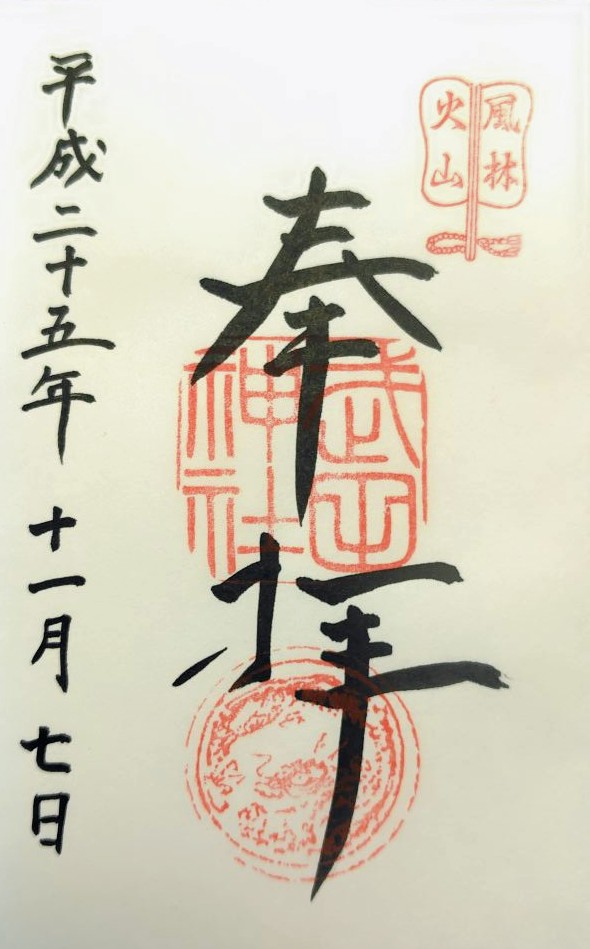 風林
火山
奉拝
武田
神社
平成二十五年 十一月 七日